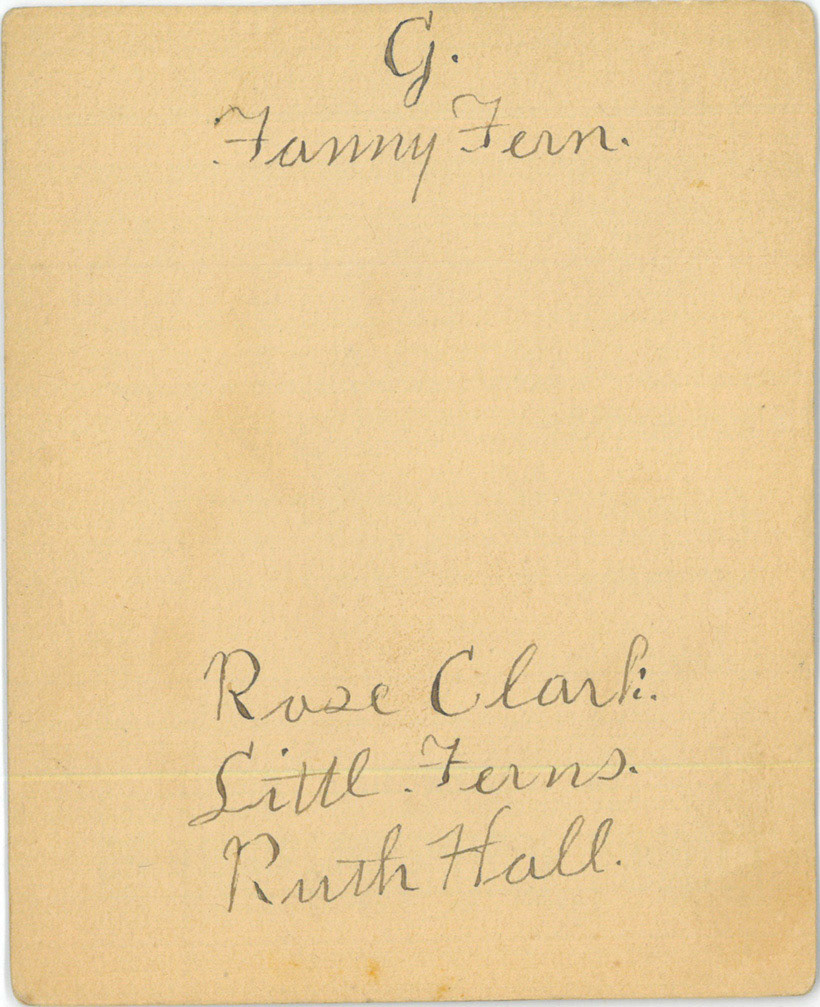 G.
Fanny Fern.
Rose Clark.
Littl Ferns.
Ruth Hall.